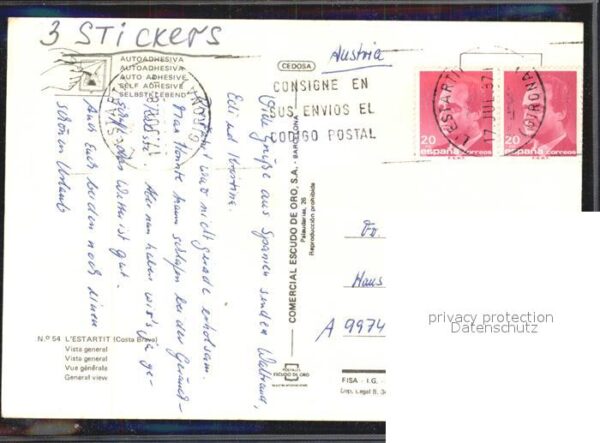 3 STICKERS
AUTOADHESIVA
AUTOADHESIVA
AUTO ADHESIVE
SELF ADHESIVE
SELBSTKLEBEND
CEDOSA
Austria
CONSIGNE EN
SUS ENVIOS EL
CODIGO POSTAL
L'ESTARTIT
17 JUL 87
(GIRONA)
20
españa correos
20
españa correos
Viele Grüße aus Spanien senden Waltraud,
Edi und Martina.
war nicht gerade erholsam.
Man konnte kaum schlafen bei der Geräusch-
Aber nun haben wir's ja ge-
schafft. Das Wetter ist gut.
Auch Euch beiden noch einen
schönen Urlaub
COMERCIAL ESCUDO DE ORO, S.A. - BARCELONA
Palaudarias, 26
Reproducción prohibida
Haus
A 9974
privacy protection
Datenschutz
N.º 54 L'ESTARTIT (Costa Brava)
Vista general
Vista general
Vue générale
General view
ESCUDO DE ORO
FISA - I.G. -
Dep. Legal B. 34